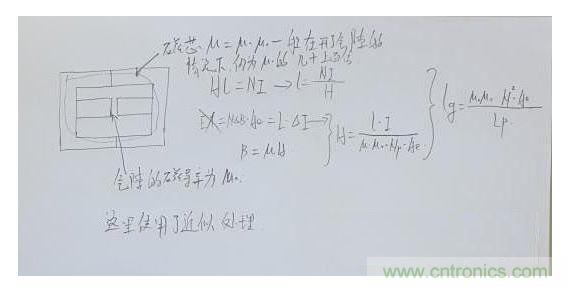 磁芯 μ = μr·μ0 一般在开了气隙的
情况下, 仍为 μ0 的几十上百倍
Hl = NI → l = NI/H
N·ΔB·Ae = L·ΔI →
B = μH
H = L·I/(μr·μ0·Np·Ae)
lg = μrμ0·N²·Ae/Lp
气隙的磁导率为 μ0
这里使用了近似处理
www.cntronics.com